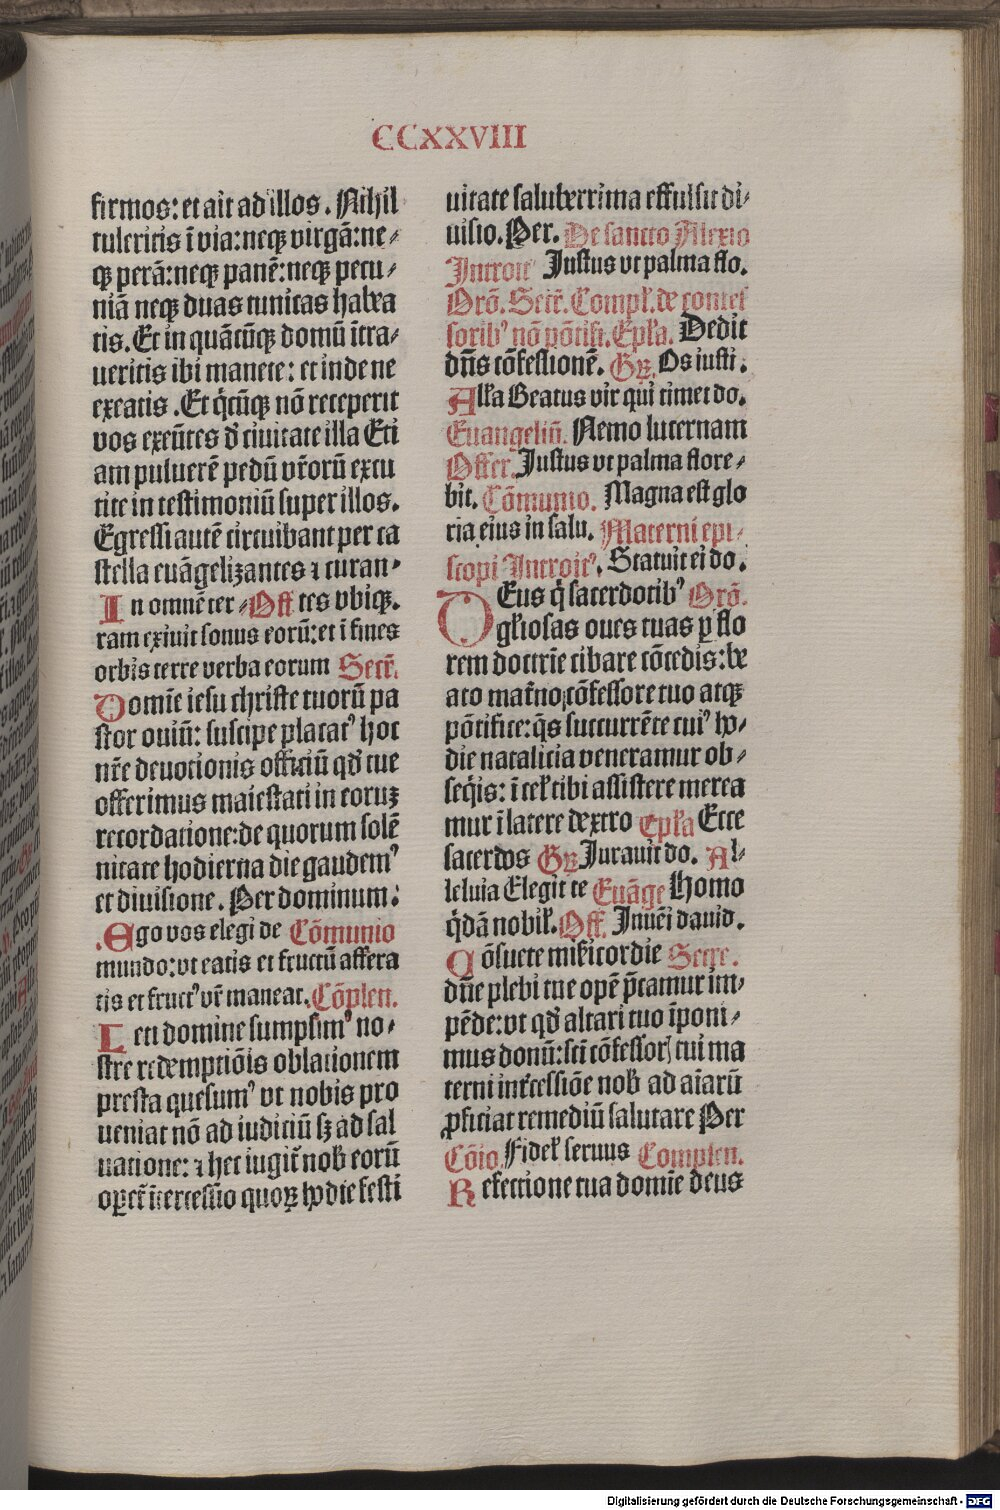 CCXXVIII
firmos: et ait ad illos. Nihil
tuleritis ī via: neqꝫ virgā: ne⸗
qꝫ perā: neqꝫ panē: neqꝫ pecu⸗
niā neqꝫ duas tunicas habea
tis. Et in quācūqꝫ domū ītra⸗
ueritis ibi manete: et inde ne
exeatis. Et q̄cūqꝫ nō receperit
vos exeūtes d' ciuitate illa Eti
am puluerē pedū vr̄orū excu
tite in testimoniū super illos.
Egressi autē circuibant per ca
stella euāgelizantes ⁊ curan⸗
In omnē ter⸗ Off tes vbiqꝫ.
ram exiuit sonus eorū: et ī fines
orbis terre verba eorum Secr̄.
Domīe iesu christe tuorū pa
stor ouiū: suscipe placatꝰ hoc
nr̄e deuotionis officiū qd' tue
offerimus maiestati in eoruꝫ
recordatione: de quorum solē
nitate hodierna die gaudemꝰ
et diuisione. Per dominum:
.Ego vos elegi de Cōmunio
mundo: vt eatis et fructū affera
tis et fructꝰ vr̄ maneat. Cōplen.
Leti domine sumpsimꝰ no⸗
stre redemptiōis oblationem
presta quesumꝰ vt nobis pro
ueniat nō ad iudiciū sꝫ ad sal
uatione: ⁊ hec iugit̄ nob̄ eorū
oꝑet̄ ītercessio quoꝝ hodie festi
uitate saluberrima effulsit di⸗
uisio. Per. De sancto Alexio
Introit' Justus vt palma flo.
Orō. Secr̄. Compl'. de confes
soribꝰ nō pōtifi. Epl'a. Dedit
dn̄s cōfessionē. Gꝝ. Os iusti.
All'a Beatus vir qui timet do.
Euangeliū. Nemo lucernam
Offer. Justus vt palma flore⸗
bit. Cōmunio. Magna est glo
ria eius in salu. Materni epi⸗
scopi Introit'. Statuit ei do.
DEus q̄ sacerdotibꝰ Orō.
gl'iosas oues tuas ꝑ flo
rem doctrīe cibare cōcedis: be
ato mat̄no cōfessore tuo atqꝫ
pōtifice: q̄s succurrēte cuiꝰ ho⸗
die natalicia veneramur ob⸗
seq̄is: ī cel' tibi assistere merea
mur ī latere dextro Epl'a Ecce
sacerdos Gꝝ Jurauit do. Al⸗
leluia Elegit te Euāge Homo
q̄dā nobil'. Off. Inuēi dauid.
Cōsuete mis̄icordie Secre.
dn̄e plebi tue opē p̄camur im⸗
pēde: vt qd' altari tuo īponi⸗
mus donū: scī cōfessor' tui ma
terni int̄cessiōe nob̄ ad aīarū
ꝓficiat remediū salutare Per
Cōio. Fidel' seruus Complen.
Refectione tua domīe deus
Digitalisierung gefördert durch die Deutsche Forschungsgemeinschaft - DFG